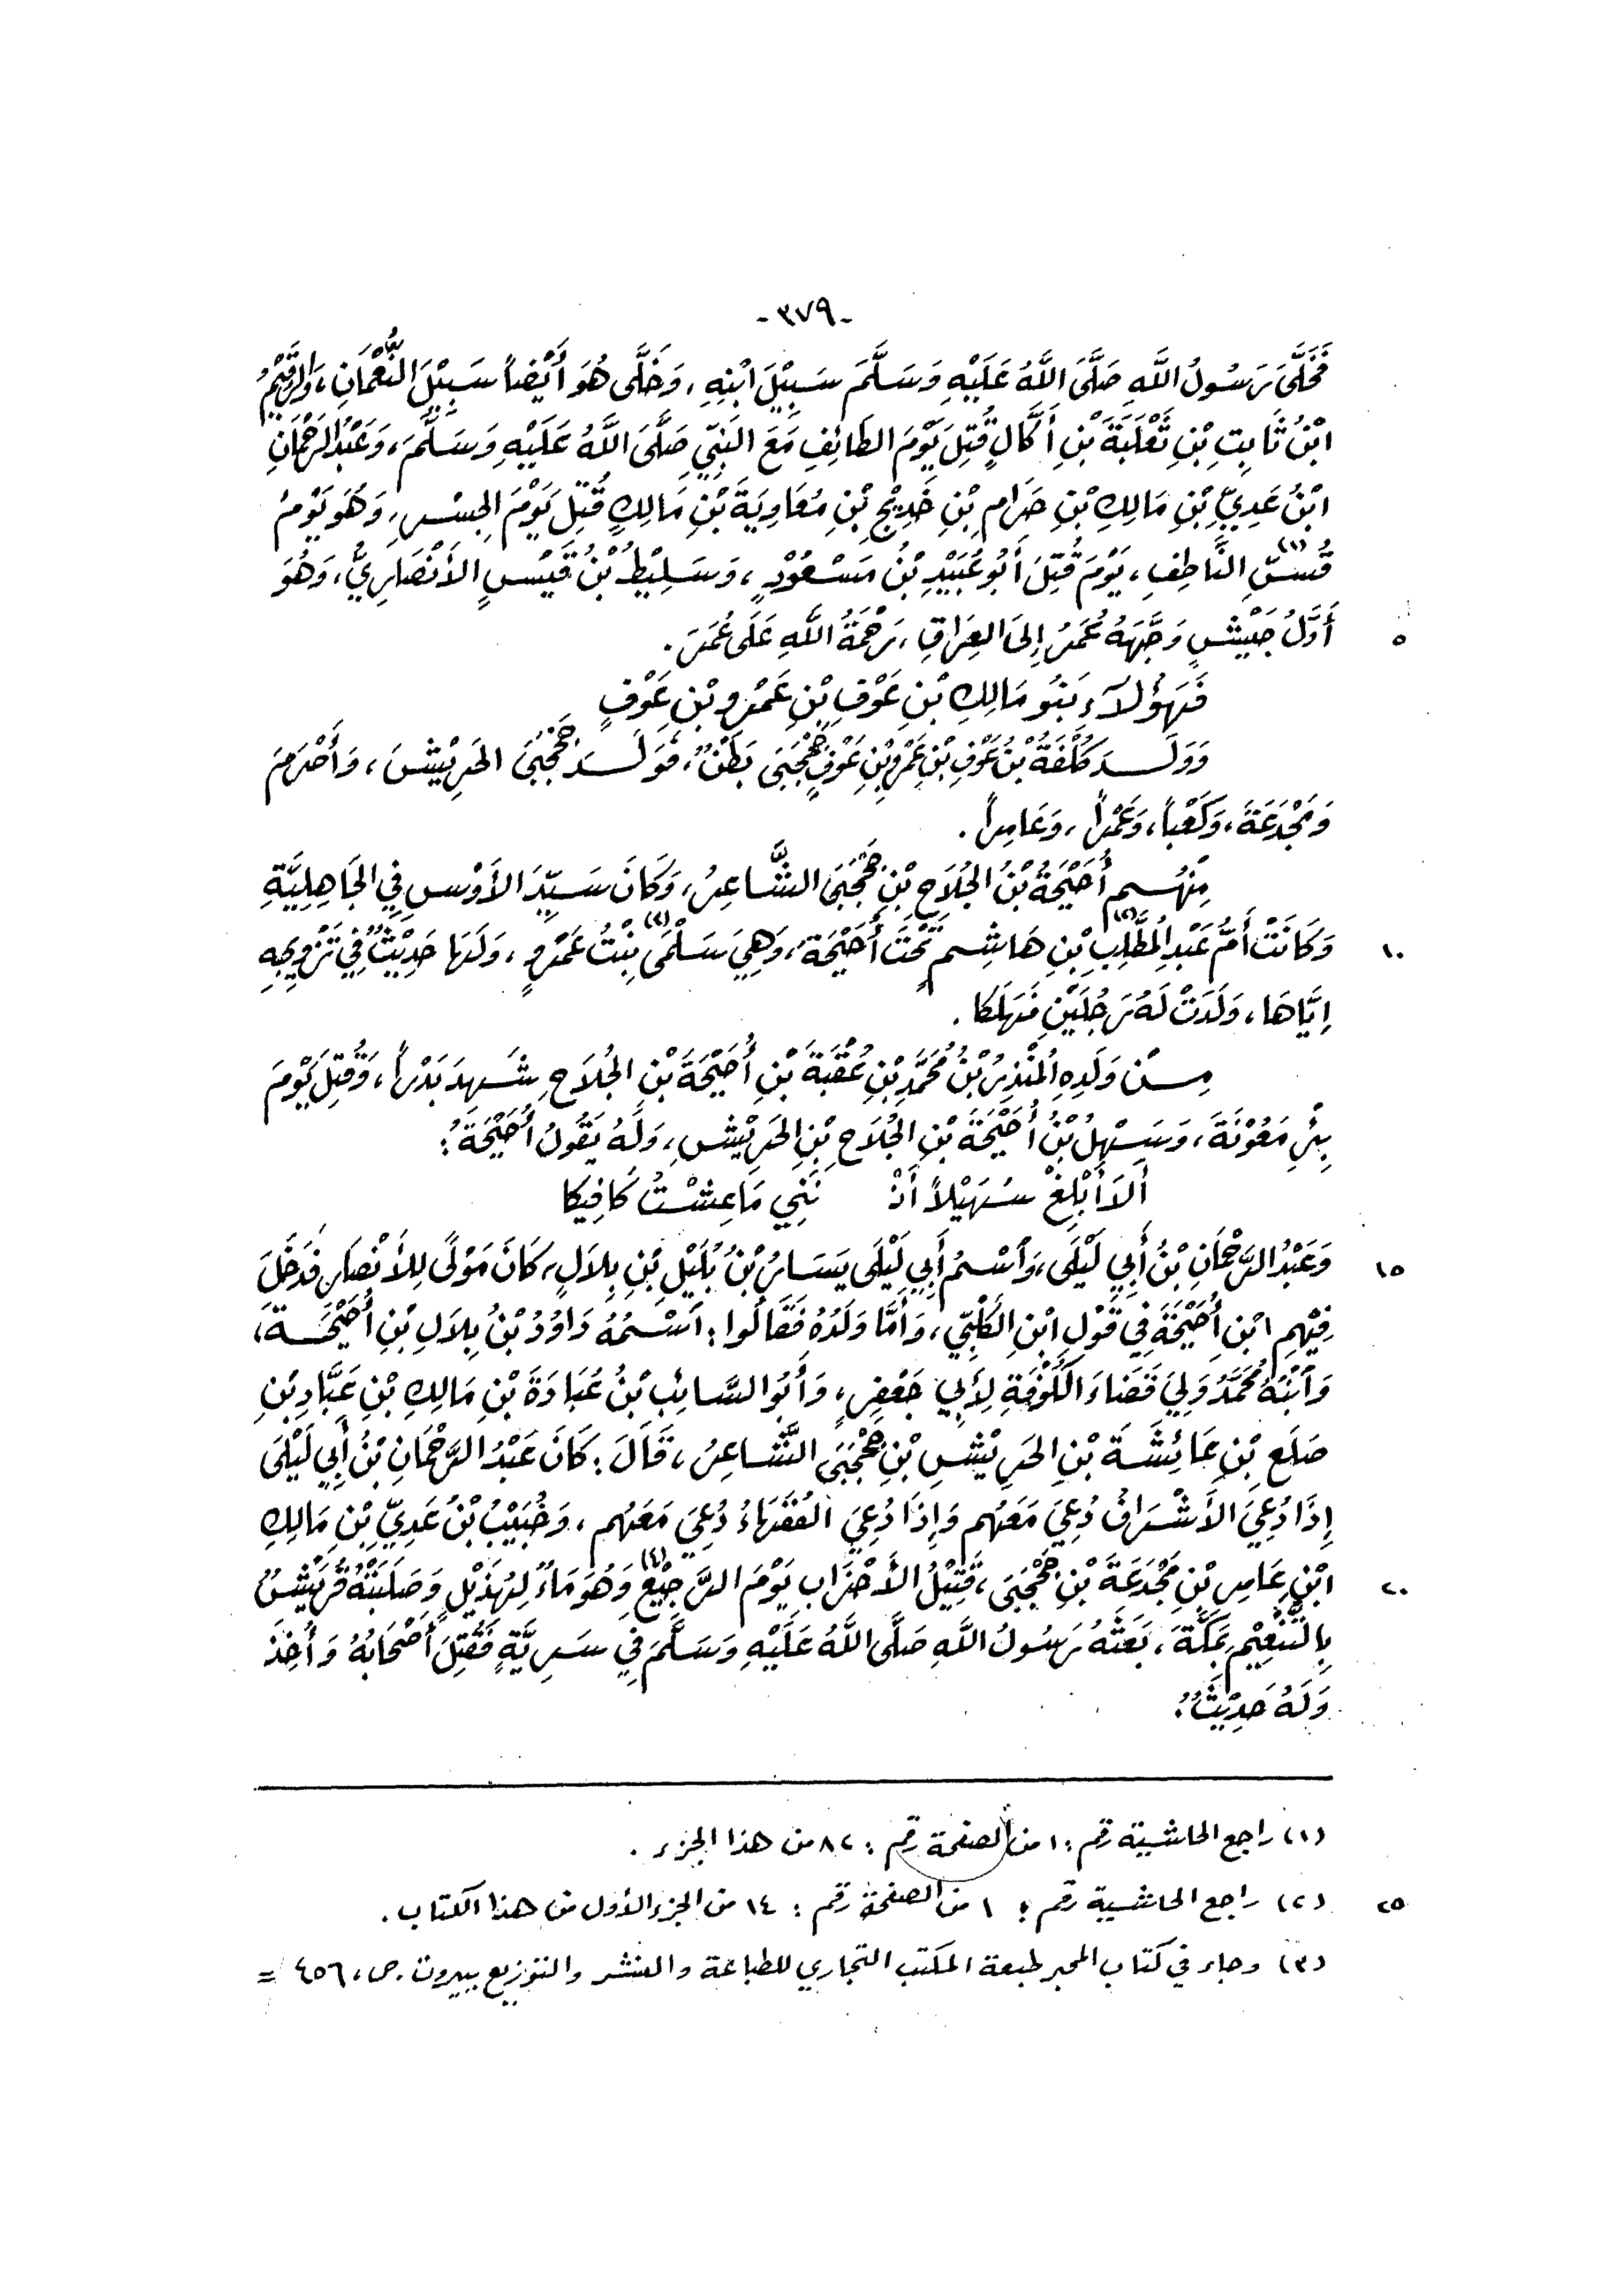 -٣٧٩-
فَخَلَّى رَسُولُ اللَّهِ صَلَّى اللَّهُ عَلَيْهِ وَسَلَّمَ سَبِيْلَ ابْنِهِ، وَخَلَّى هُوَ أَيْضاً سَبِيْلَ النُّعْمَانِ، وَالرُّقَيْمُ
ابْنُ ثَابِتِ بْنِ ثَعْلَبَةَ بْنِ أَكَّالٍ قُتِلَ يَوْمَ الطَائِفِ مَعَ النَبِيِّ صَلَّى اللَّهُ عَلَيْهِ وَسَلَّمَ، وَعَبْدُ الرَّحْمَانِ
ابْنُ عَدِيِّ بْنِ مَالِكِ بْنِ حَرَامِ بْنِ خَدِيْجِ بْنِ مُعَاوِيَةَ بْنِ مَالِكٍ قُتِلَ يَوْمَ الجِسْرِ، وَهُوَ يَوْمُ
قُسِّ النَّاطِفِ(١)، يَوْمَ قُتِلَ أَبُو عُبَيْدِ بْنُ مَسْعُوْدٍ، وَسَلِيْطُ بْنُ قَيْسٍ الأَنْصَارِيُّ، وَهُوَ
أَوَّلُ جَيْشٍ وَجَّهَهُ عُمَرُ إِلَى العِرَاقِ، رَحْمَةُ اللَّهِ عَلَى عُمَرَ. ٥
فَهَؤُلَآءِ بَنُو مَالِكِ بْنِ عَوْفِ بْنِ عَمْرِو بْنِ عَوْفٍ
وَوَلَدَ كُلْفَةُ بْنُ عَوْفِ بْنِ عَمْرِو بْنِ عَوْفٍ جَحْجَبَى بَطْنٌ، فَوَلَدَ جَحْجَبَى الحَرِيْشَ، وَأَصْرَمَ
وَمَجْدَعَةَ، وَكَعْباً، وَعَمْراً، وَعَامِراً.
مِنْهُم أُحَيْحَةُ بْنُ الجُلَاحِ بْنِ جَحْجَبَى الشَّاعِرُ، وَكَانَ سَيِّدَ الأَوْسِ فِي الجَاهِلِيَّةِ
وَكَانَتْ أُمُّ عَبْدِ المُطَّلِبِ(٢) بْنِ هَاشِمٍ تَحْتَ أُحَيْحَةَ، وَهِيَ سَلْمَى(٢) بِنْتُ عَمْرٍو، وَلَهَا حَدِيْثٌ فِي تَزْوِيجِهِ ١٠
إِيَّاهَا، وَلَدَتْ لَهُ رَجُلَيْنِ فَهَلَكَا.
مِنْ وَلَدِهِ المُنْذِرُ بْنُ مُحَمَّدِ بْنِ عُقْبَةَ بْنِ أُحَيْحَةَ بْنِ الجُلَاحِ شَهِدَ بَدْراً، وَقُتِلَ يَوْمَ
بِئْرِ مَعُوْنَةَ، وَسَهْلُ بْنُ أُحَيْحَةَ بْنِ الجُلَاحِ بْنِ الحَرِيْشِ، وَلَهُ يَقُولُ أُحَيْحَةُ:
أَلاَ أَبْلِغْ سُهَيْلاً أَنْ نَنِي مَا عِشْتُ كَافِيكَا
وَعَبْدُ الرَّحْمَانِ بْنُ أَبِي لَيْلَى، وَاسْمُ أَبِي لَيْلَى يَسَارُ بْنُ بُلَيْلِ بْنِ بِلَالٍ، كَانَ مَوْلًى لِلأَنْصَارِ فَدَخَلَ ١٥
فِيْهِمِ ابْنِ أُحَيْحَةَ فِي قَوْلِ ابْنِ الكَلْبِيِّ، وَأَمَّا وَلَدُهُ فَقَالُوا: اسْمُهُ دَاوُدُ بْنُ بِلَالِ بْنِ أُحَيْحَةَ،
وَابْنُهُ مُحَمَّدٌ وَلِيَ قَضَاءَ الكُوْفَةِ لِأَبِي جَعْفَرٍ، وَأَبُو السَّائِبِ بْنُ عُبَادَةَ بْنِ مَالِكِ بْنِ عَبَّادِ بْنِ
صَلَعِ بْنِ عَائِشَةَ بْنِ الحَرِيْشِ بْنِ جَحْجَبَى الشَّاعِرُ، قَالَ: كَانَ عَبْدُ الرَّحْمَانِ بْنُ أَبِي لَيْلَى
إِذَا دُعِيَ الأَشْرَافُ دُعِيَ مَعَهُم وَإِذَا دُعِيَ الفُقَهَاءُ دُعِيَ مَعَهُم، وَخُبَيْبُ بْنُ عَدِيِّ بْنِ مَالِكِ
ابْنِ عَامِرِ بْنِ مَجْدَعَةَ بْنِ جَحْجَبَى، قَتِيْلُ الأَحْزَابِ يَوْمَ الرَّجِيْعِ(٤) وَهُوَ مَاءٌ لِهُذَيْلٍ وَصَلَبَتْهُ قُرَيْشٌ ٢٠
بِالتَّنْعِيْمِ بِمَكَّةَ، بَعَثَهُ رَسُولُ اللَّهِ صَلَّى اللَّهُ عَلَيْهِ وَسَلَّمَ فِي سَرِيَّةٍ فَقُتِلَ أَصْحَابُهُ وَأُخِذَ
وَلَهُ حَدِيْثٌ.
(١) راجع الحاشية رقم: ١ من الصفحة رقم: ٨٢ من هذا الجزء.
(٢) راجع الحاشية رقم: ١ من الصفحة رقم: ١٤ من الجزء الأول من هذا الكتاب. ٢٥
(٣) وجاء في كتاب المحبر طبعة المكتب التجاري للطباعة والنشر والتوزيع ببيروت. ص، ٤٥٦ =